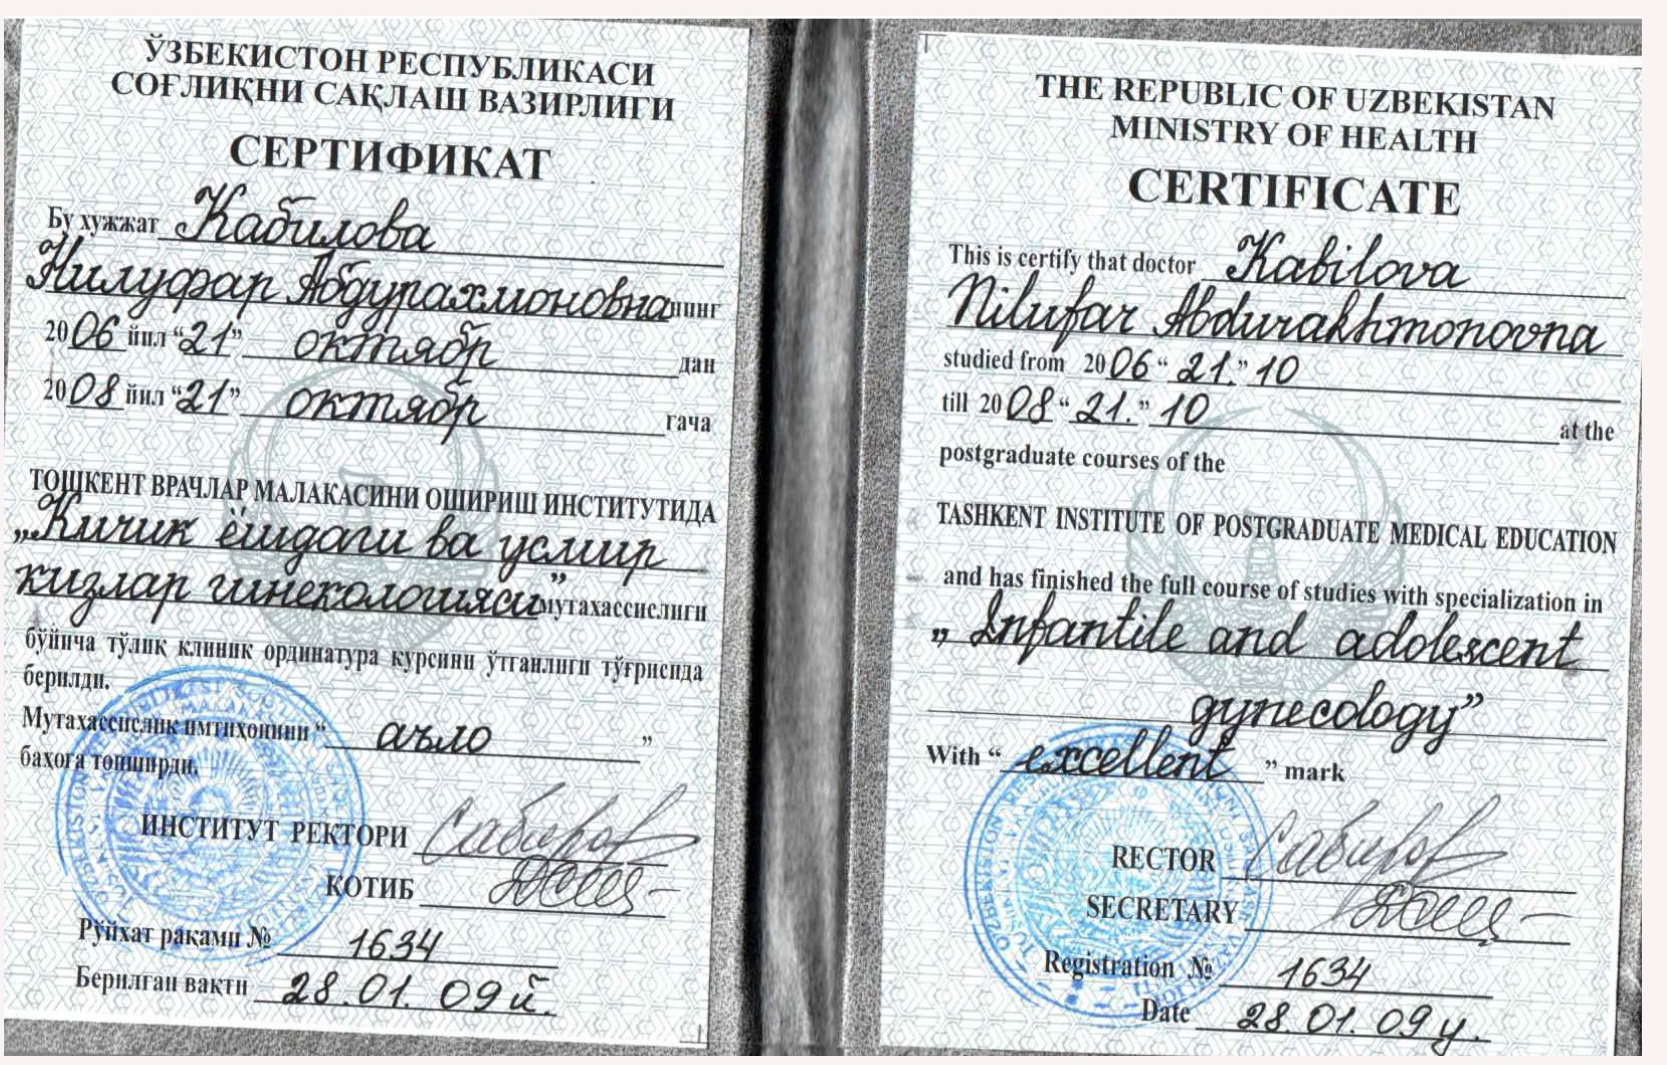 ЎЗБЕКИСТОН РЕСПУБЛИКАСИ
СОҒЛИҚНИ САҚЛАШ ВАЗИРЛИГИ
СЕРТИФИКАТ
Бу хужжат Кабилова
Нилуфар Абдурахмоновнанинг
2006 йил “21” октябр дан
2008 йил “21” октябр гача
ТОШКЕНТ ВРАЧЛАР МАЛАКАСИНИ ОШИРИШ ИНСТИТУТИДА
„Кичик ёшдаги ва усмир
кизлар гинекологияси” мутахассислиги
бўйича тўлиқ клиник ординатура курсини ўтганлиги тўғрисида
берилди.
Мутахассислик имтихонини “ аъло ”
бахога топширди.
ИНСТИТУТ РЕКТОРИ
КОТИБ
Рўйхат рақами № 1634
Берилган вақти 28.01.09 й.
THE REPUBLIC OF UZBEKISTAN
MINISTRY OF HEALTH
CERTIFICATE
This is certify that doctor Kabilova
Nilufar Abdurakhmonovna
studied from 2006 “ 21. ” 10
till 2008 “ 21. ” 10 at the
postgraduate courses of the
TASHKENT INSTITUTE OF POSTGRADUATE MEDICAL EDUCATION
and has finished the full course of studies with specialization in
„Infantile and adolescent
gynecology”
With “ excellent ” mark
RECTOR
SECRETARY
Registration № 1634
Date 28.01.09 y.